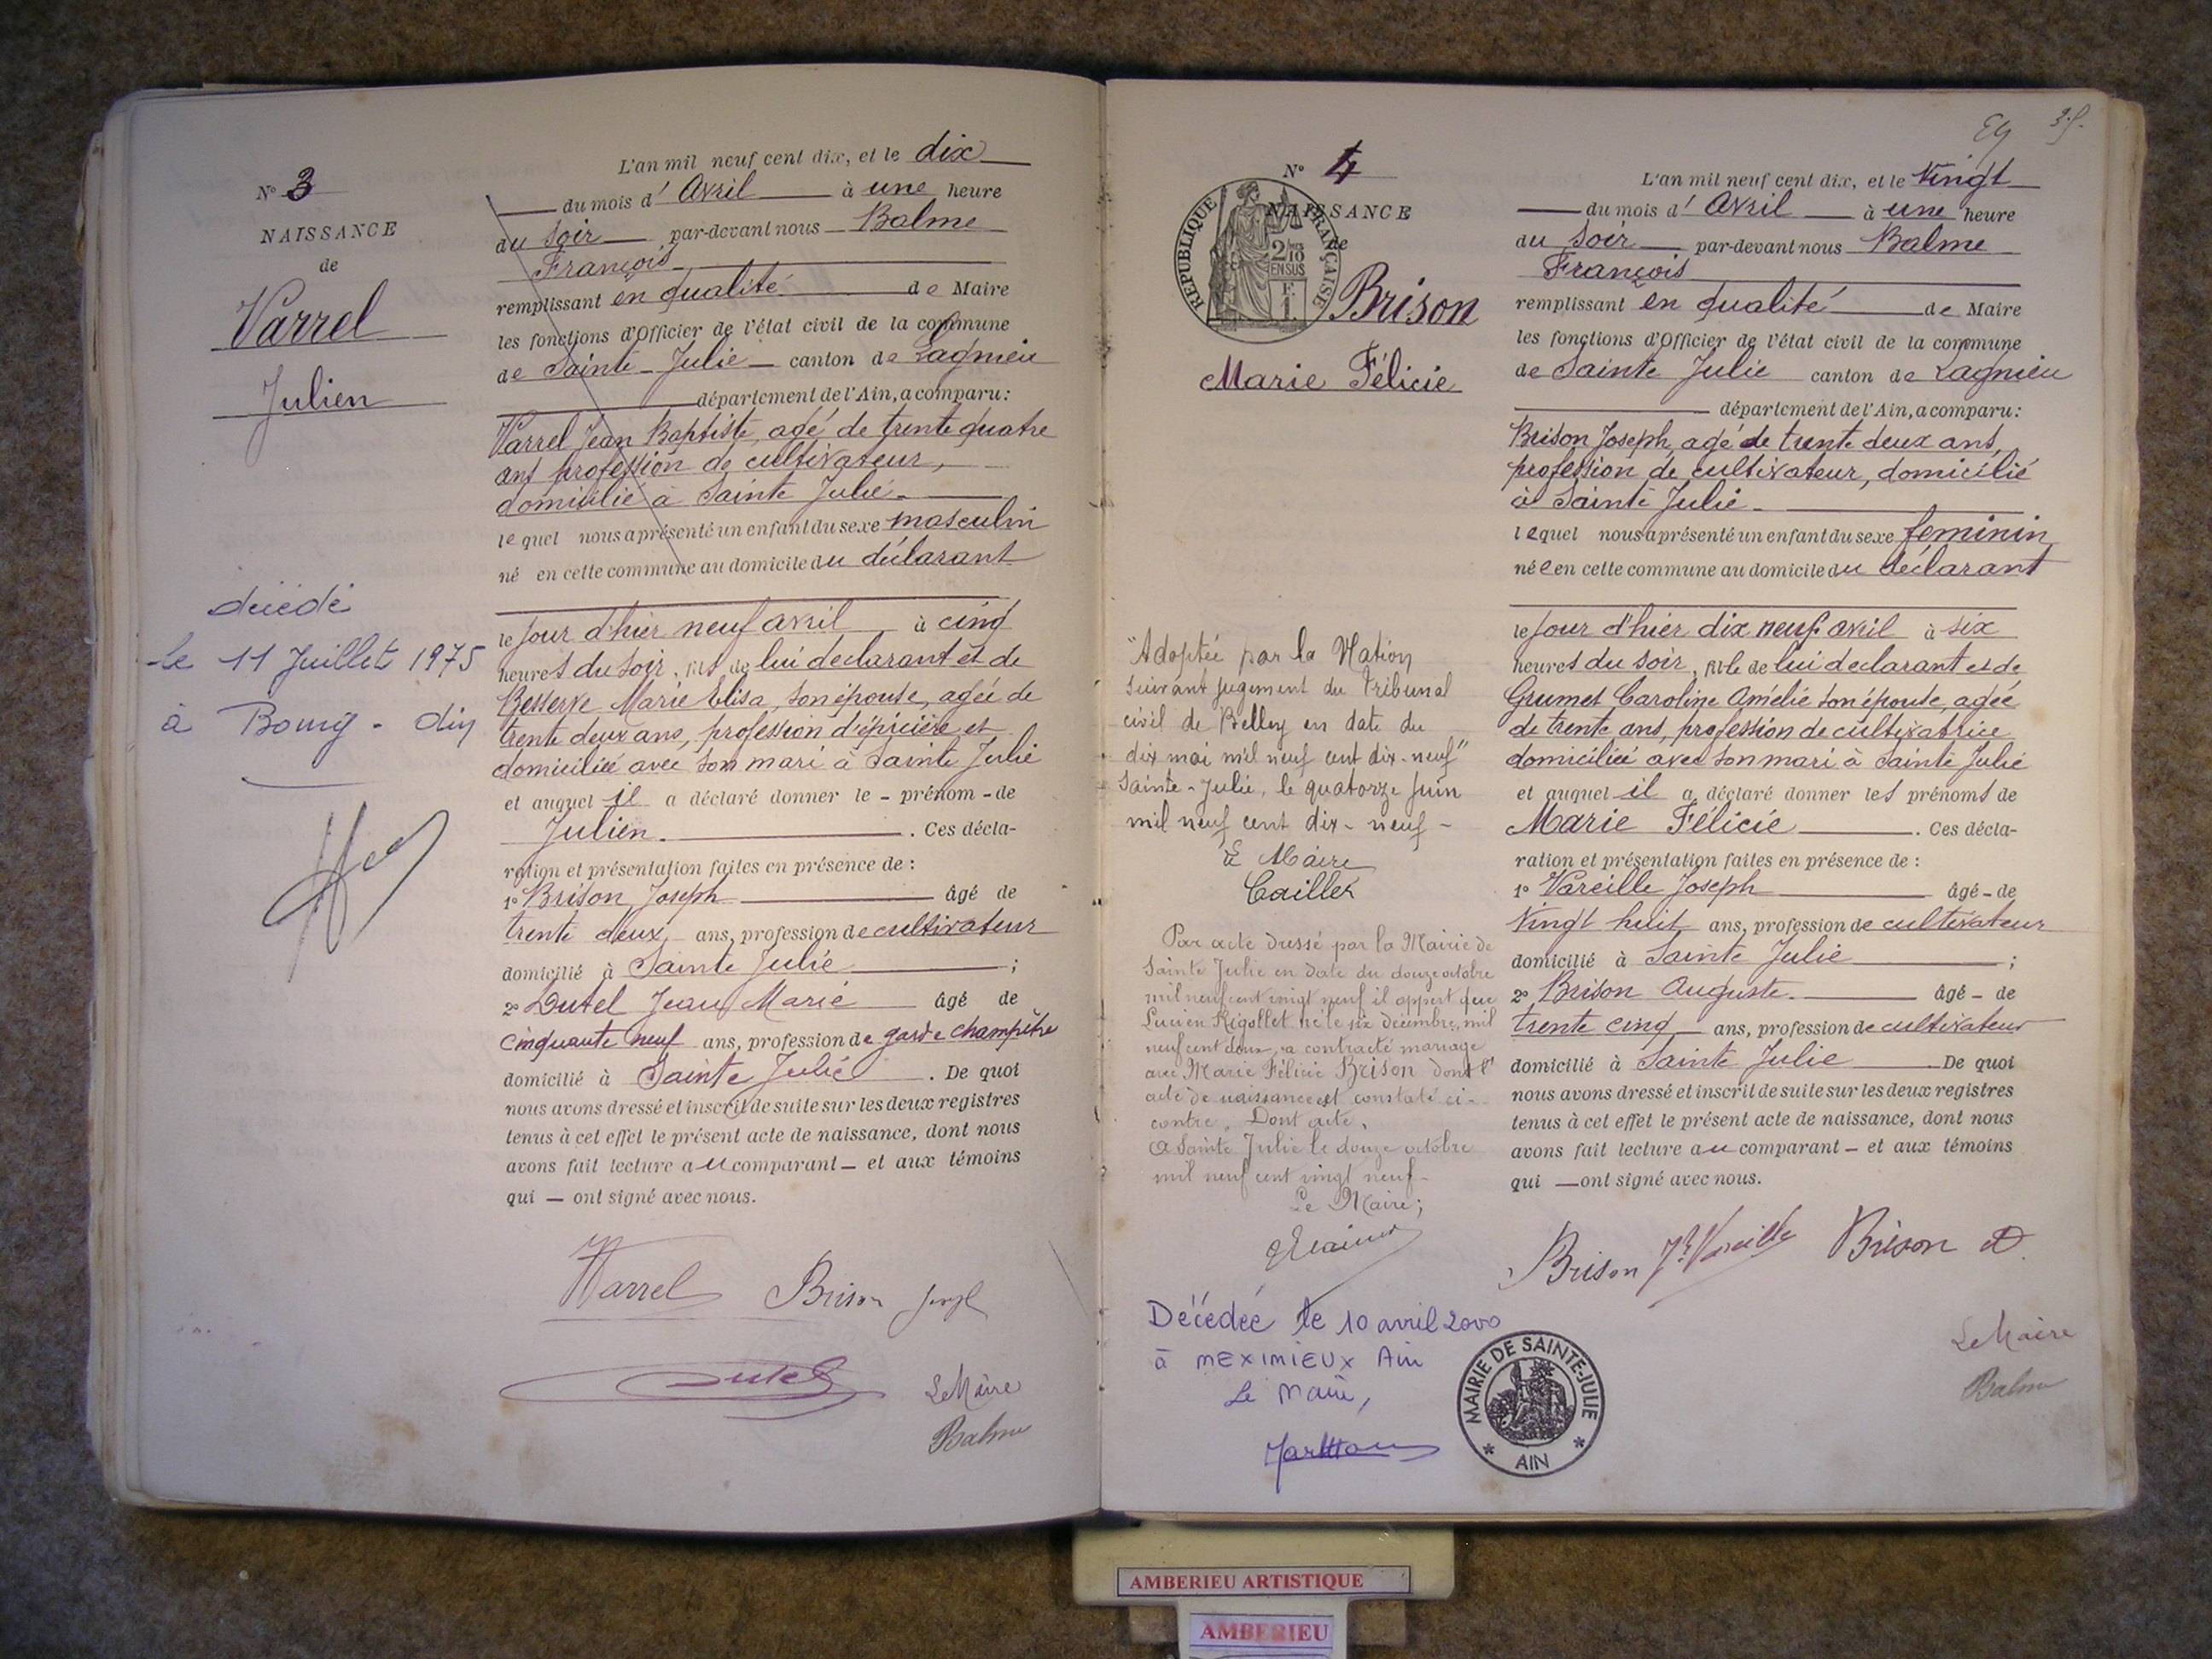 N° 3
NAISSANCE
de
Varrel
Julien
décédé
le 11 Juillet 1975
à Bourg - Ain
L'an mil neuf cent dix, et le dix
du mois d'Avril à une heure
du soir par-devant nous Balme
François
remplissant en qualité de Maire
les fonctions d'Officier de l'état civil de la commune
de Sainte-Julie canton de Lagnieu
département de l'Ain, a comparu:
Varrel Jean Baptiste, agé de trente quatre
ans profession de cultivateur,
domicilié à Sainte Julie.
lequel nous a présenté un enfant du sexe masculin
né en cette commune au domicile du déclarant
le jour d'hier neuf avril à cinq
heures du soir, fils de lui declarant et de
Marie Elisa, son épouse, agée de
trente deux ans, profession d'épicière et
domiciliée avec son mari à Sainte Julie
et auquel il a déclaré donner le - prénom - de
Julien. Ces décla-
ration et présentation faites en présence de :
1° Brison Joseph âgé de
trente deux ans, profession de cultivateur
domicilié à Sainte Julie ;
2° Dutel Jean Marie âgé de
cinquante neuf ans, profession de garde champêtre
domicilié à Sainte Julie. De quoi
nous avons dressé et inscrit de suite sur les deux registres
tenus à cet effet le présent acte de naissance, dont nous
avons fait lecture au comparant - et aux témoins
qui — ont signé avec nous.
Varrel Brison Joseph
Dutel
Le Maire
Balme
35.
N° 4
NAISSANCE
de
REPUBLIQUE FRANÇAISE
2/10
EN SUS
F.
1.
Brison
Marie Félicie
"Adoptée par la Nation
suivant jugement du Tribunal
civil de Belley en date du
dix mai mil neuf cent dix-neuf"
Sainte-Julie, le quatorze juin
mil neuf cent dix-neuf-
Le Maire
Caillet
Par acte dressé par la Mairie de
Sainte Julie en date du douze octobre
mil neuf cent vingt neuf il appert que
Lucien Rigollet né le six décembre, mil
neuf cent deux, a contracté mariage
avec Marie Félicie Brison dont l'
acte de naissance est constaté ci-
contre. Dont acte.
A Sainte Julie le douze octobre
mil neuf cent vingt neuf-
Le Maire;
Décédée le 10 avril 2000
à MEXIMIEUX Ain
Le Maire,
MAIRIE DE SAINTE-JULIE
* AIN *
L'an mil neuf cent dix, et le vingt
du mois d'Avril à une heure
du soir par-devant nous Balme
François
remplissant en qualité de Maire
les fonctions d'Officier de l'état civil de la commune
de Sainte Julie canton de Lagnieu
département de l'Ain, a comparu:
Brison Joseph, agé de trente deux ans,
profession de cultivateur, domicilié
à Sainte Julie.
lequel nous a présenté un enfant du sexe feminin
née en cette commune au domicile du déclarant
le jour d'hier dix neuf avril à six
heures du soir, fille de lui declarant et de
Grumet Caroline Amélie son épouse, agée
de trente ans, profession de cultivatrice
domiciliée avec son mari à Sainte Julie
et auquel il a déclaré donner les prénoms de
Marie Félicie. Ces décla-
ration et présentation faites en présence de :
1° Vareille Joseph âgé - de
vingt huit ans, profession de cultivateur
domicilié à Sainte Julie ;
2° Brison Auguste. âgé - de
trente cinq ans, profession de cultivateur
domicilié à Sainte Julie De quoi
nous avons dressé et inscrit de suite sur les deux registres
tenus à cet effet le présent acte de naissance, dont nous
avons fait lecture au comparant - et aux témoins
qui — ont signé avec nous.
Brison Jh Vareille Brison A
Le Maire
Balme
AMBERIEU ARTISTIQUE
AMBERIEU